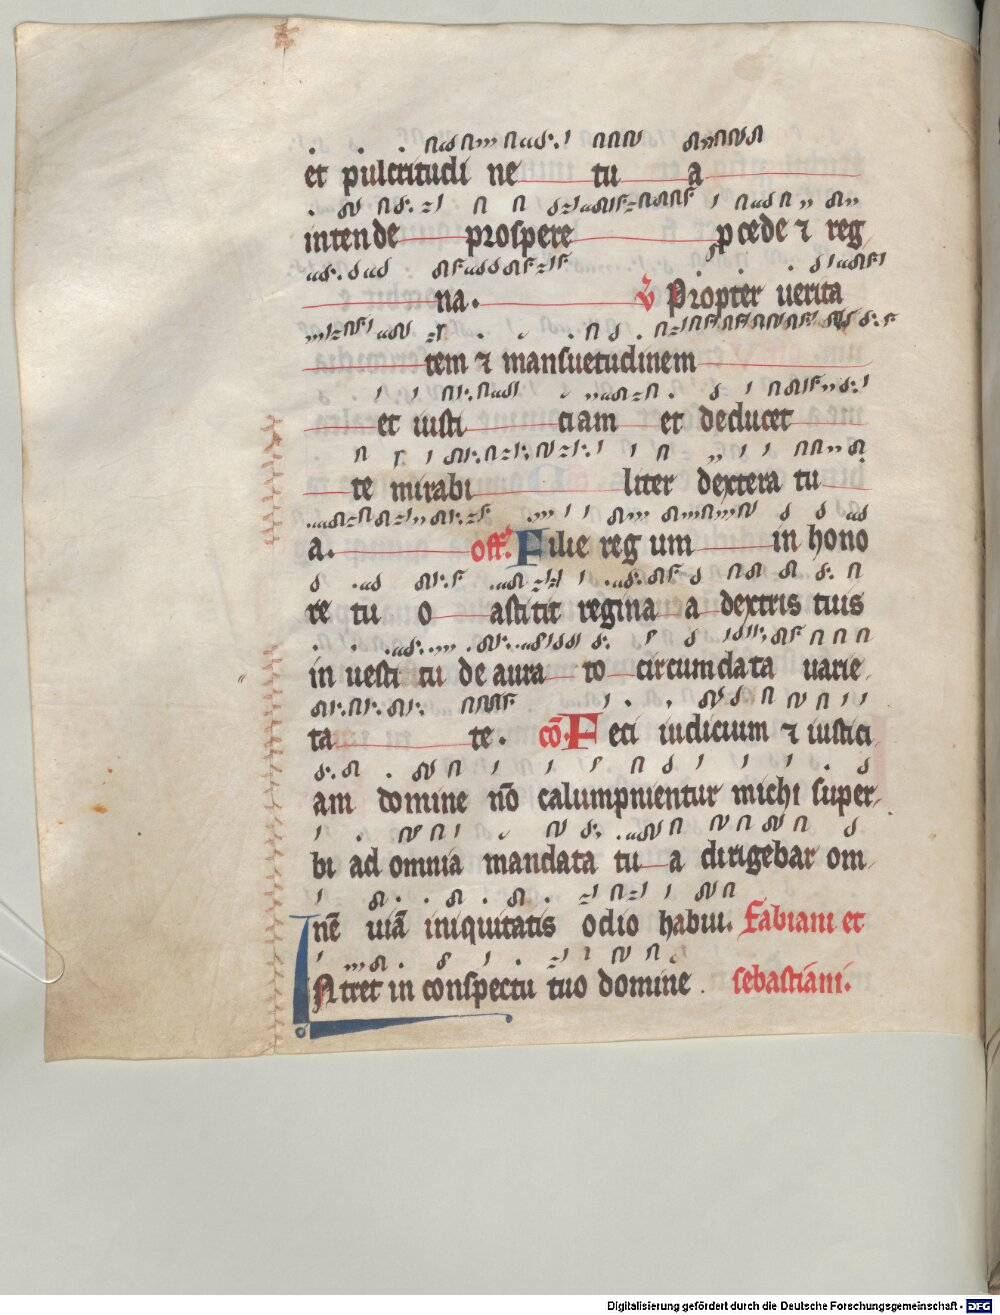 et pulcritudi ne tu a
intende prospere pcede ⁊ reg
na. ℣ Propter uerita
tem ⁊ mansuetudinem
et iusti ciam et deducet
te mirabi liter dextera tu
a. off. Filie reg um in hono
re tu o astitit regina a dextris tuis
in uesti tu de aura to circumdata uarie
ta te. cō. Feci iudicium ⁊ iustici
am domine nō calumpnientur michi super
bi ad omnia mandata tu a dirigebar om
nē uiā iniquitatis odio habui. Fabiani et
INtret in conspectu tuo domine . sebastiani.
Digitalisierung gefördert durch die Deutsche Forschungsgemeinschaft - DFG